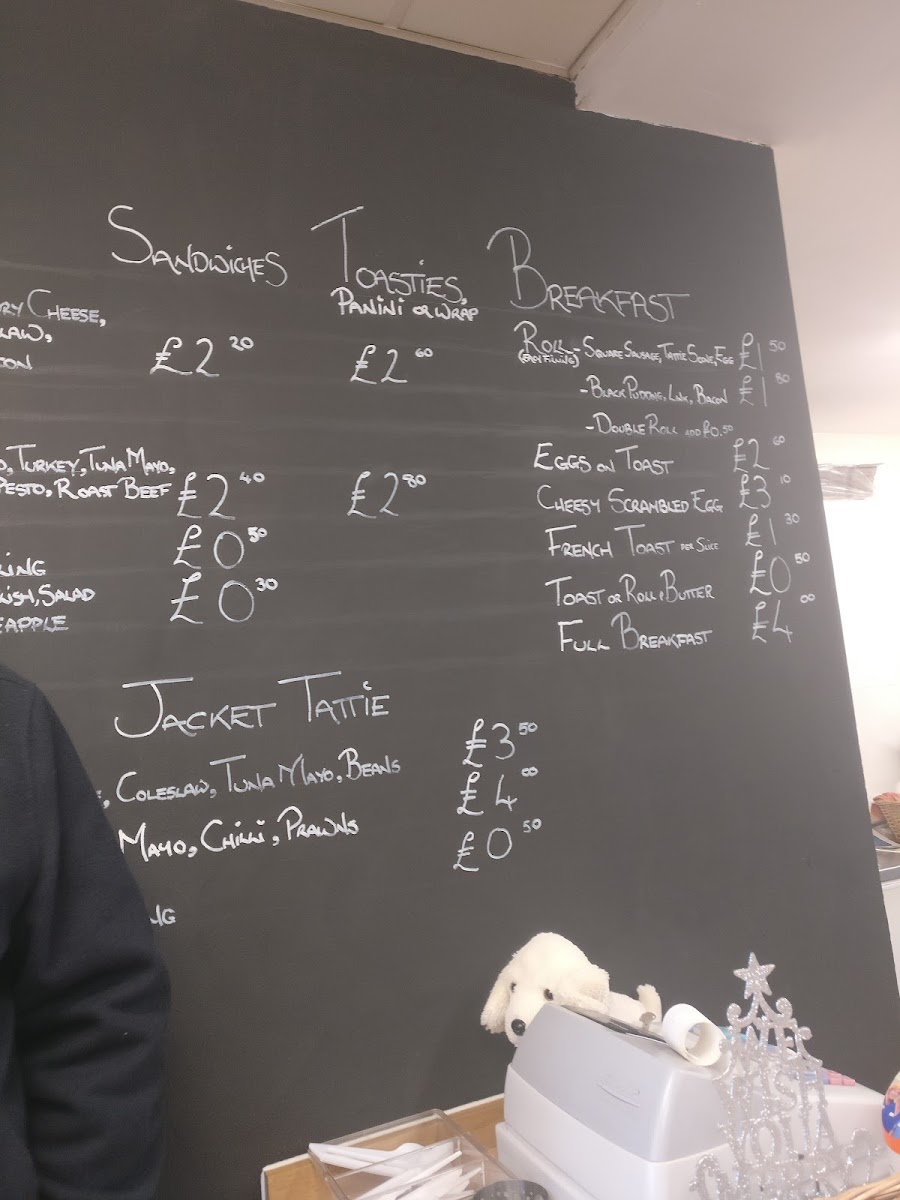 Sandwiches
Toasties,
Panini or Wrap
Breakfast
Cheese,
£2 20
£2 60
Turkey, Tuna Mayo,
Pesto, Roast Beef £2 40
£2 80
£0 50
Salad £0 30
Roll - Square Sausage, Tattie Scone, Egg £1 50
- Black Pudding, Link, Bacon £1 80
- Double Roll add £0.50
Eggs on Toast £2 60
Cheesy Scrambled Egg £3 10
French Toast per Slice £1 30
Toast or Roll & Butter £0 50
Full Breakfast £4 00
Jacket Tattie
Coleslaw, Tuna Mayo, Beans £3 50
Mayo, Chilli, Prawns £4 00
£0 50
We
Wish
You A